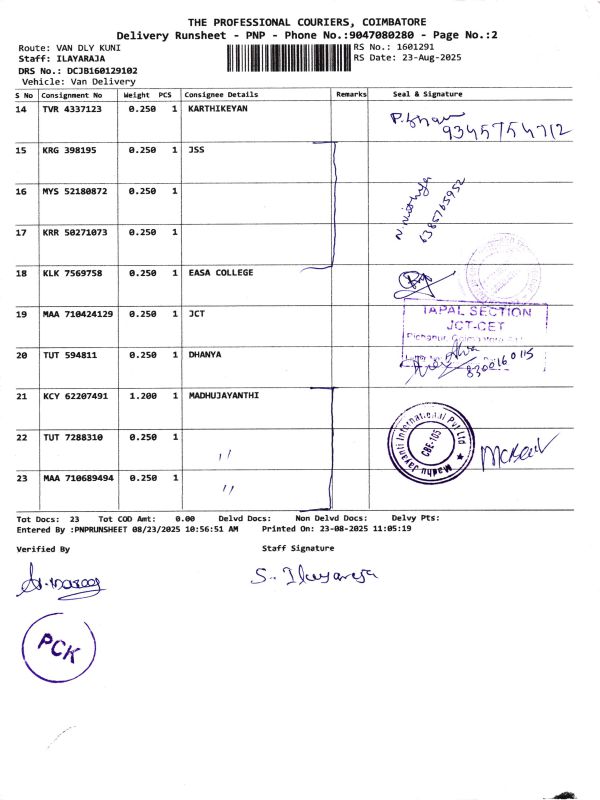 THE PROFESSIONAL COURIERS, COIMBATORE
Delivery Runsheet - PNP - Phone No.:9047080280 - Page No.:2
Route: VAN DLY KUNI RS No.: 1601291
Staff: ILAYARAJA RS Date: 23-Aug-2025
DRS No.: DCJB160129102
Vehicle: Van Delivery
S No Consignment No Weight PCS Consignee Details Remarks Seal & Signature
14 TVR 4337123 0.250 1 KARTHIKEYAN
9345754712
15 KRG 398195 0.250 1 JSS
16 MYS 52180872 0.250 1
6385765952
17 KRR 50271073 0.250 1
18 KLK 7569758 0.250 1 EASA COLLEGE
19 MAA 710424129 0.250 1 JCT
TAPAL SECTION
JCT-CET
20 TUT 594811 0.250 1 DHANYA
8300160115
21 KCY 62207491 1.200 1 MADHUJAYANTHI
Madhu Jayanti International Pvt Ltd
CBE-105
22 TUT 7288310 0.250 1 〃
23 MAA 710689494 0.250 1 〃
Tot Docs: 23 Tot COD Amt: 0.00 Delvd Docs: Non Delvd Docs: Delvy Pts:
Entered By :PNPRUNSHEET 08/23/2025 10:56:51 AM Printed On: 23-08-2025 11:05:19
Verified By Staff Signature
S. Ilayaraja
PCK